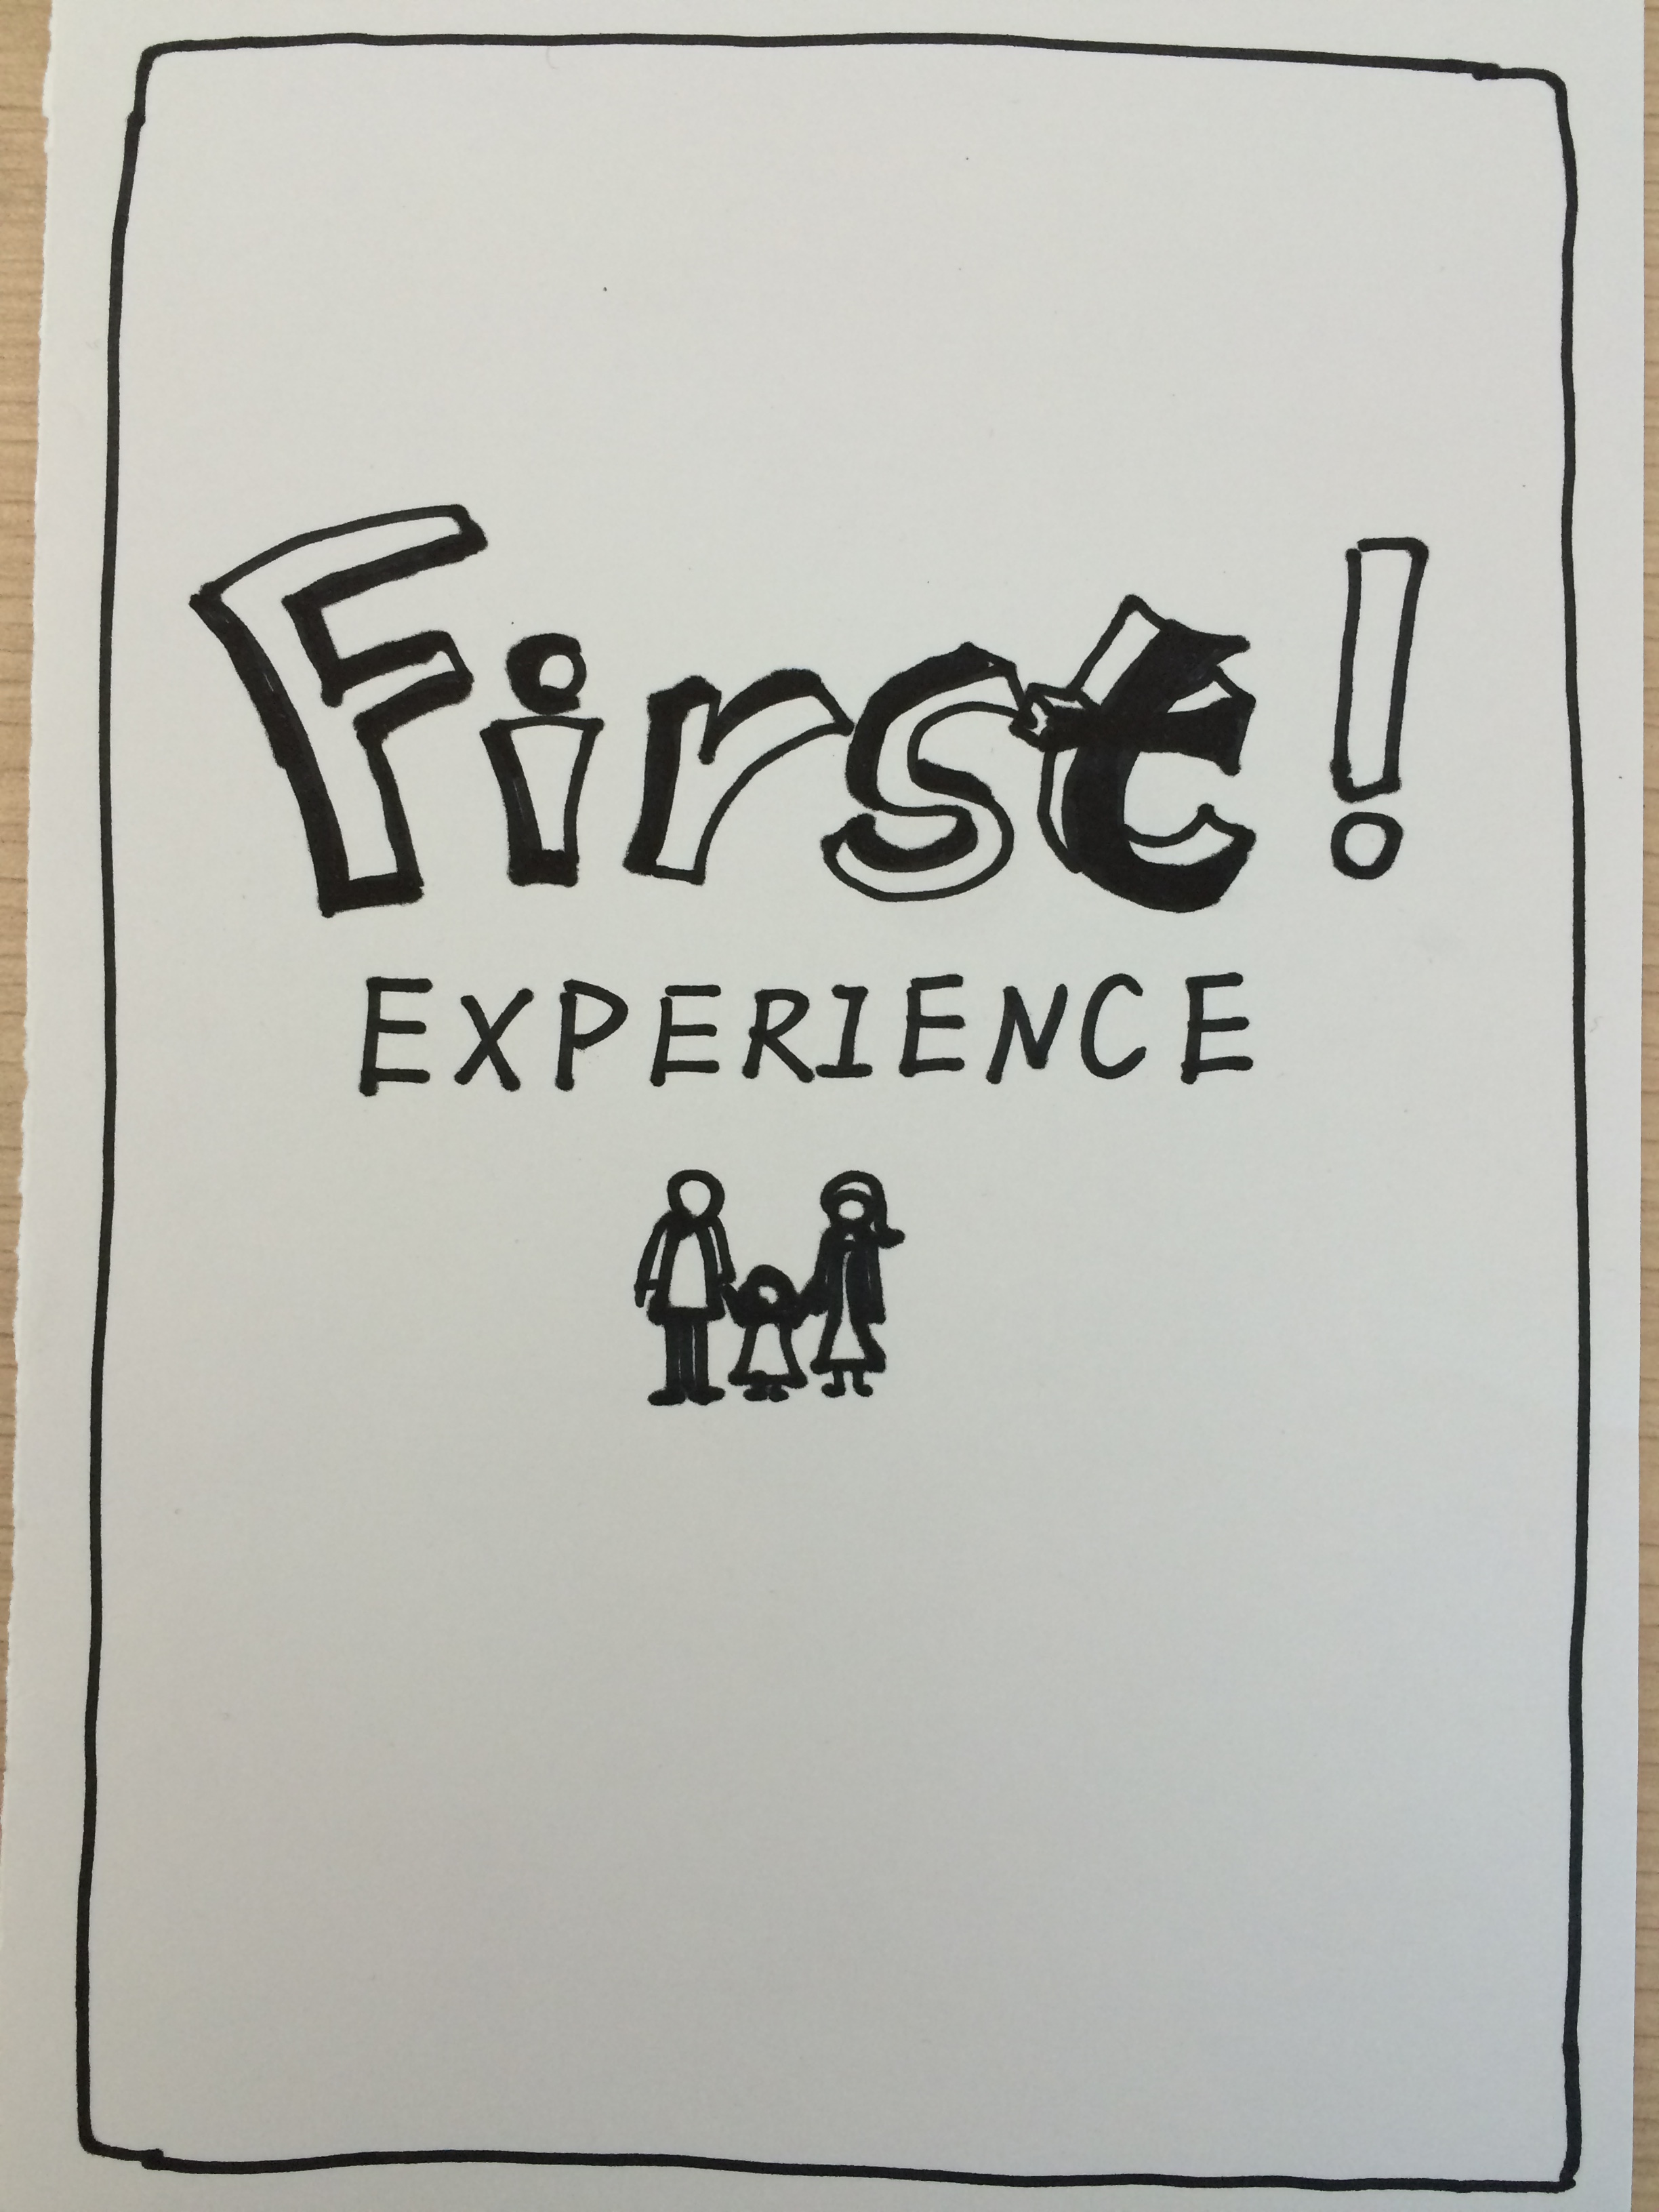 First!
EXPERIENCE